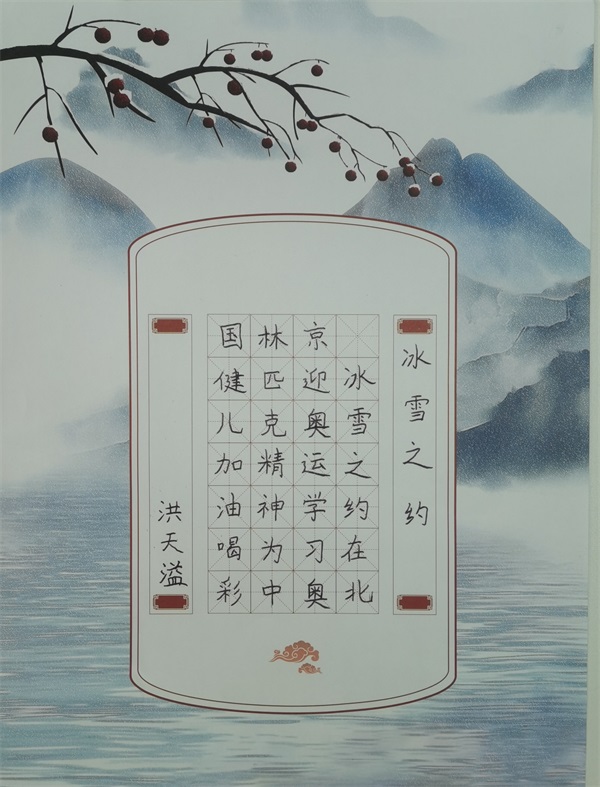 冰雪之约
冰雪之约在北
京迎奥运学习奥
林匹克精神为中
国健儿加油喝彩
洪天溢